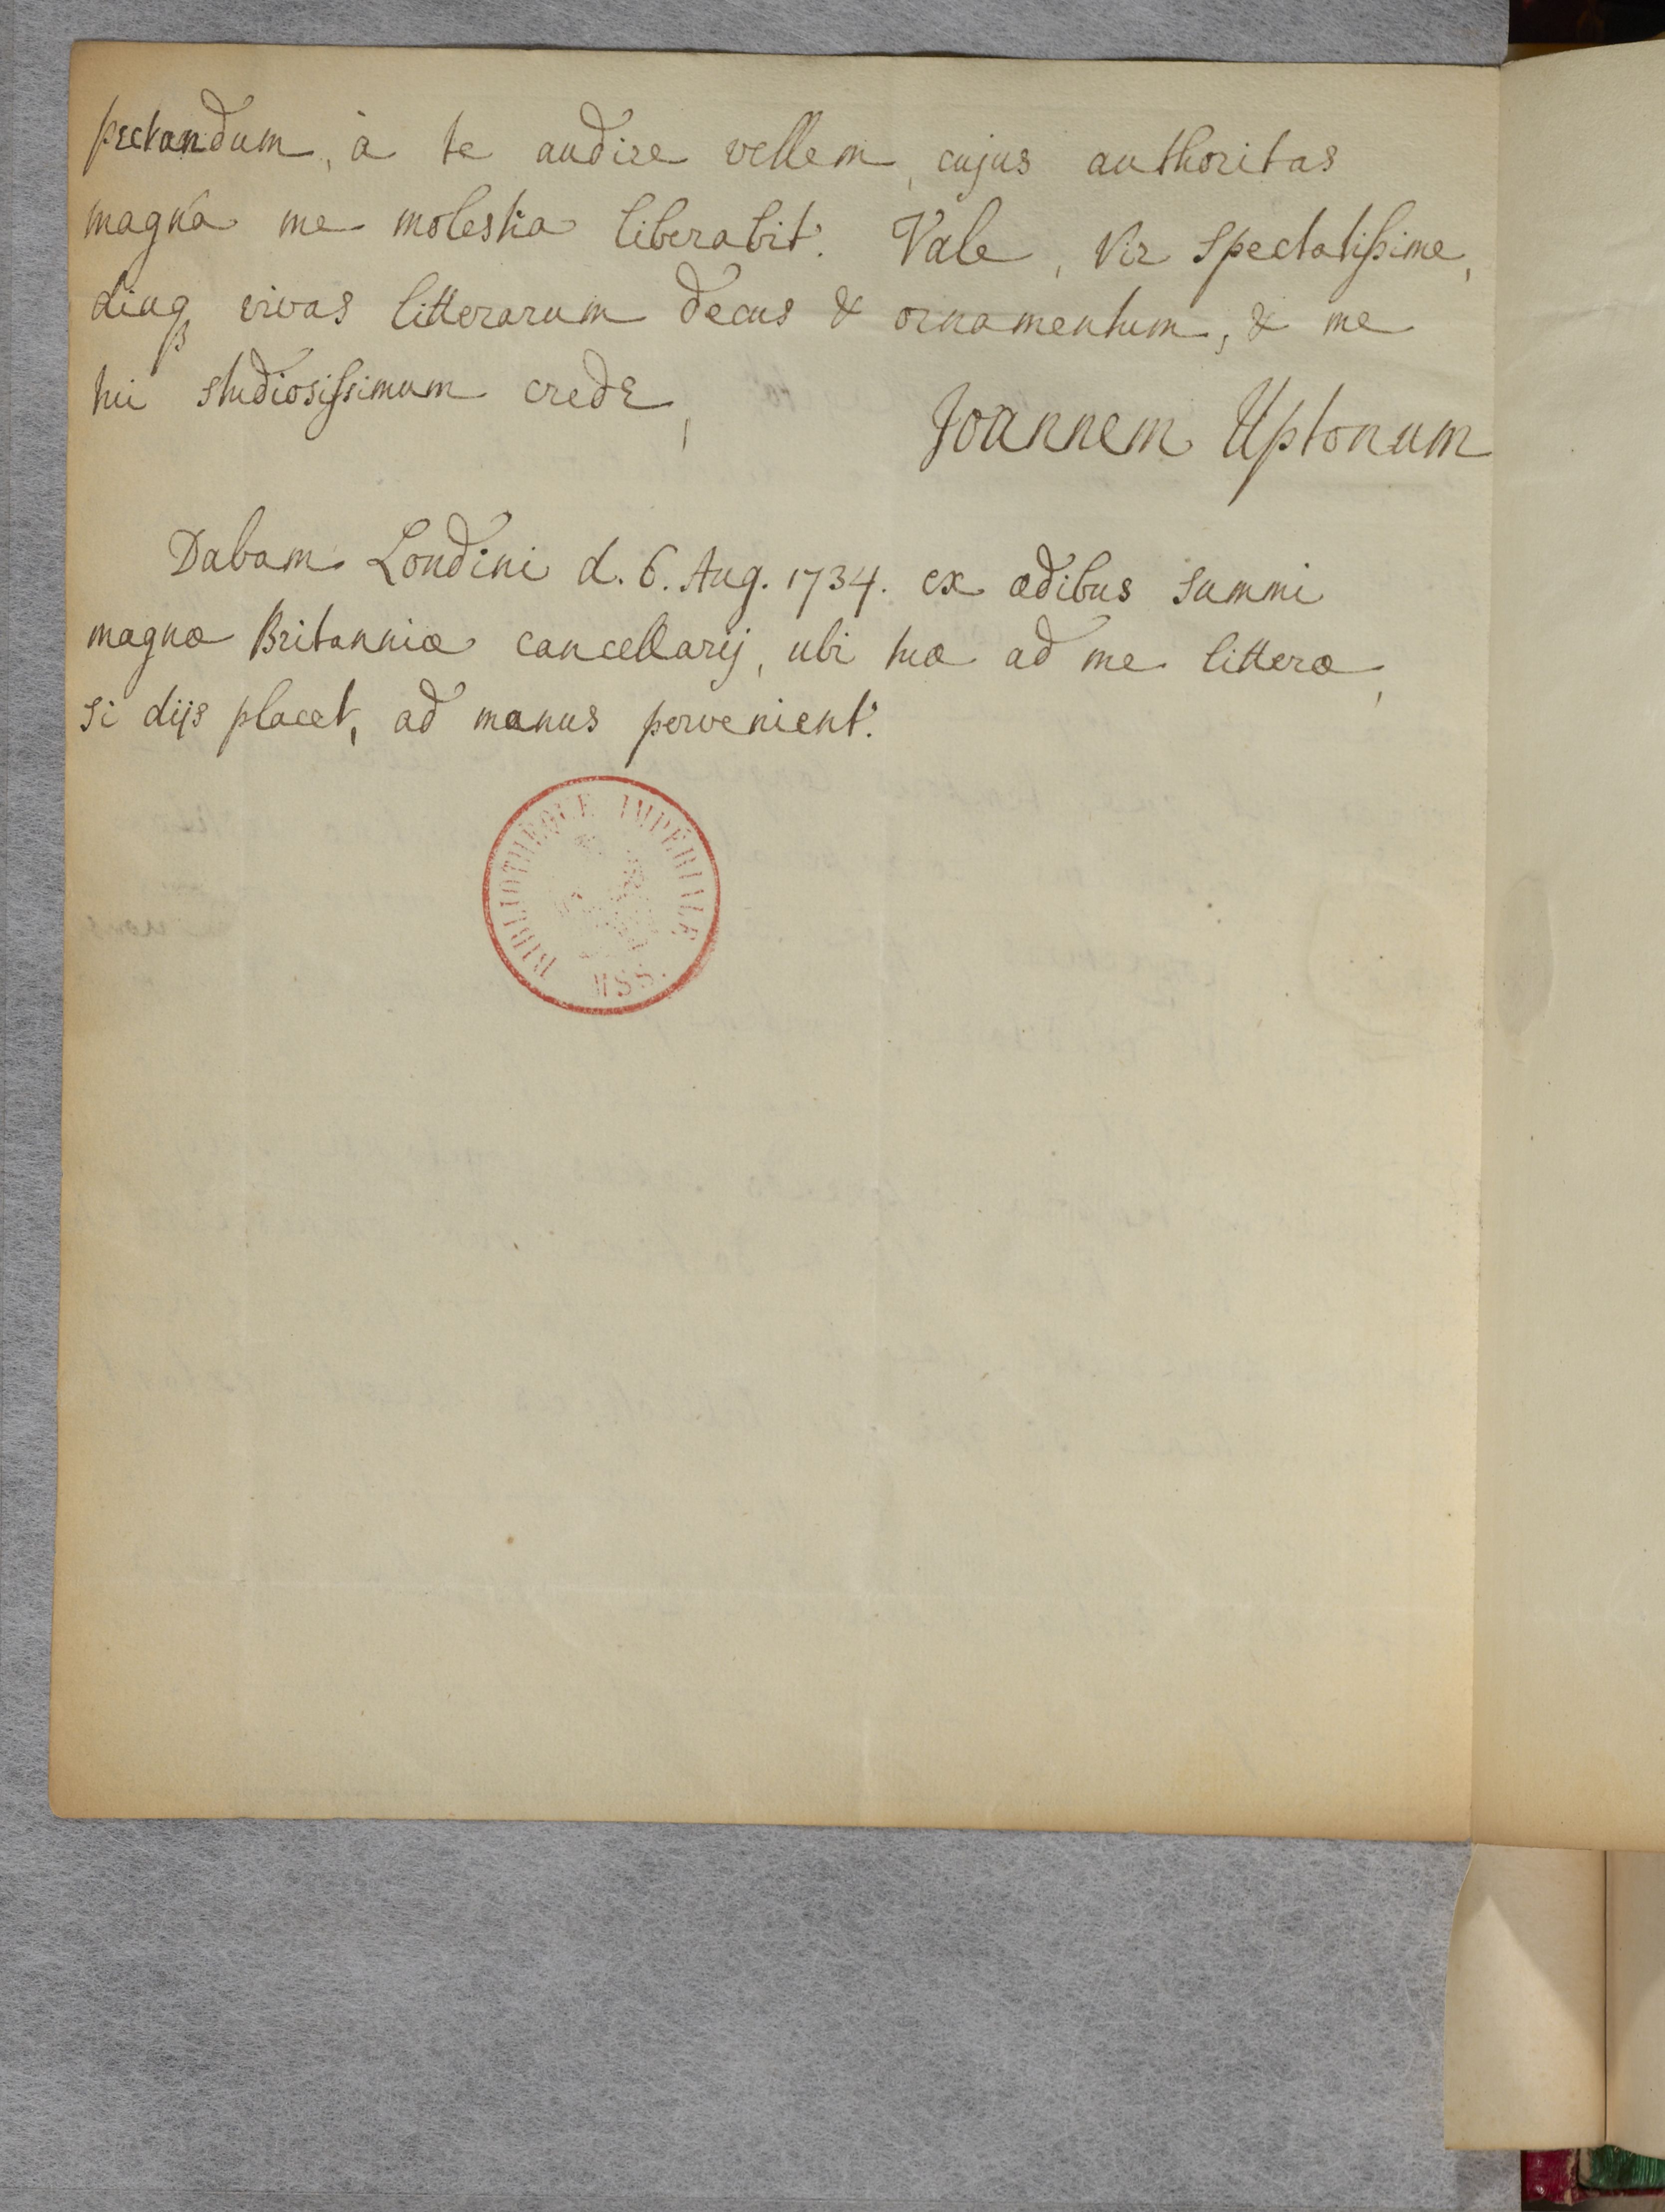 pectandum, à te audire vellem, cujus authoritas
magnâ me molestia liberabit. Vale, Vir Spectatissime,
diuq; vivas litterarum decus & ornamentum, & me
tui studiosissimum crede,
Joannem Uptonum
Dabam Londini d. 6. Aug. 1734. ex ædibus summi
magnæ Britanniæ cancellarij, ubi tuæ ad me litteræ,
si dijs placet, ad manus pervenient.
BIBLIOTHÈQUE IMPÉRIALE
MSS.